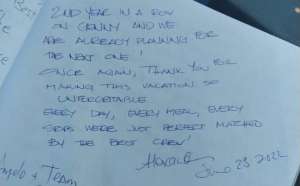 2ND YEAR IN A ROW
ON GENNY AND WE
ARE ALREADY PLANNING FOR
THE NEXT ONE!
ONCE AGAIN, THANK YOU FOR
MAKING THIS VACATION SO
UNFORGETABLE
EVERY DAY, EVERY MEAL, EVERY
WERE JUST PERFECT MATCHED
BY THE BEST CREW!
23 2022
+ TEAM